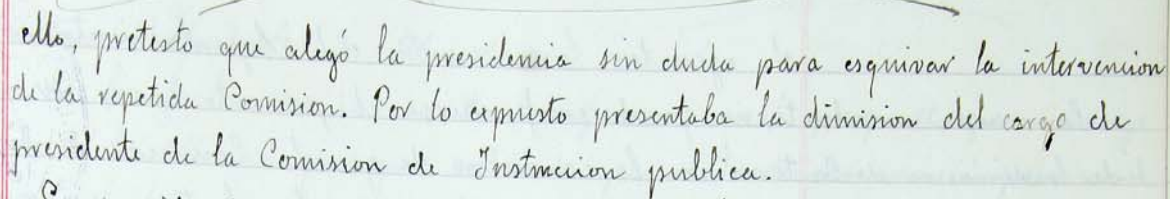 ello, pretesto que alegó la presidencia sin duda para esquivar la intervencion
de la repetida Comision. Por lo expuesto presentaba la dimision del cargo de
presidente de la Comision de Instruccion publica.